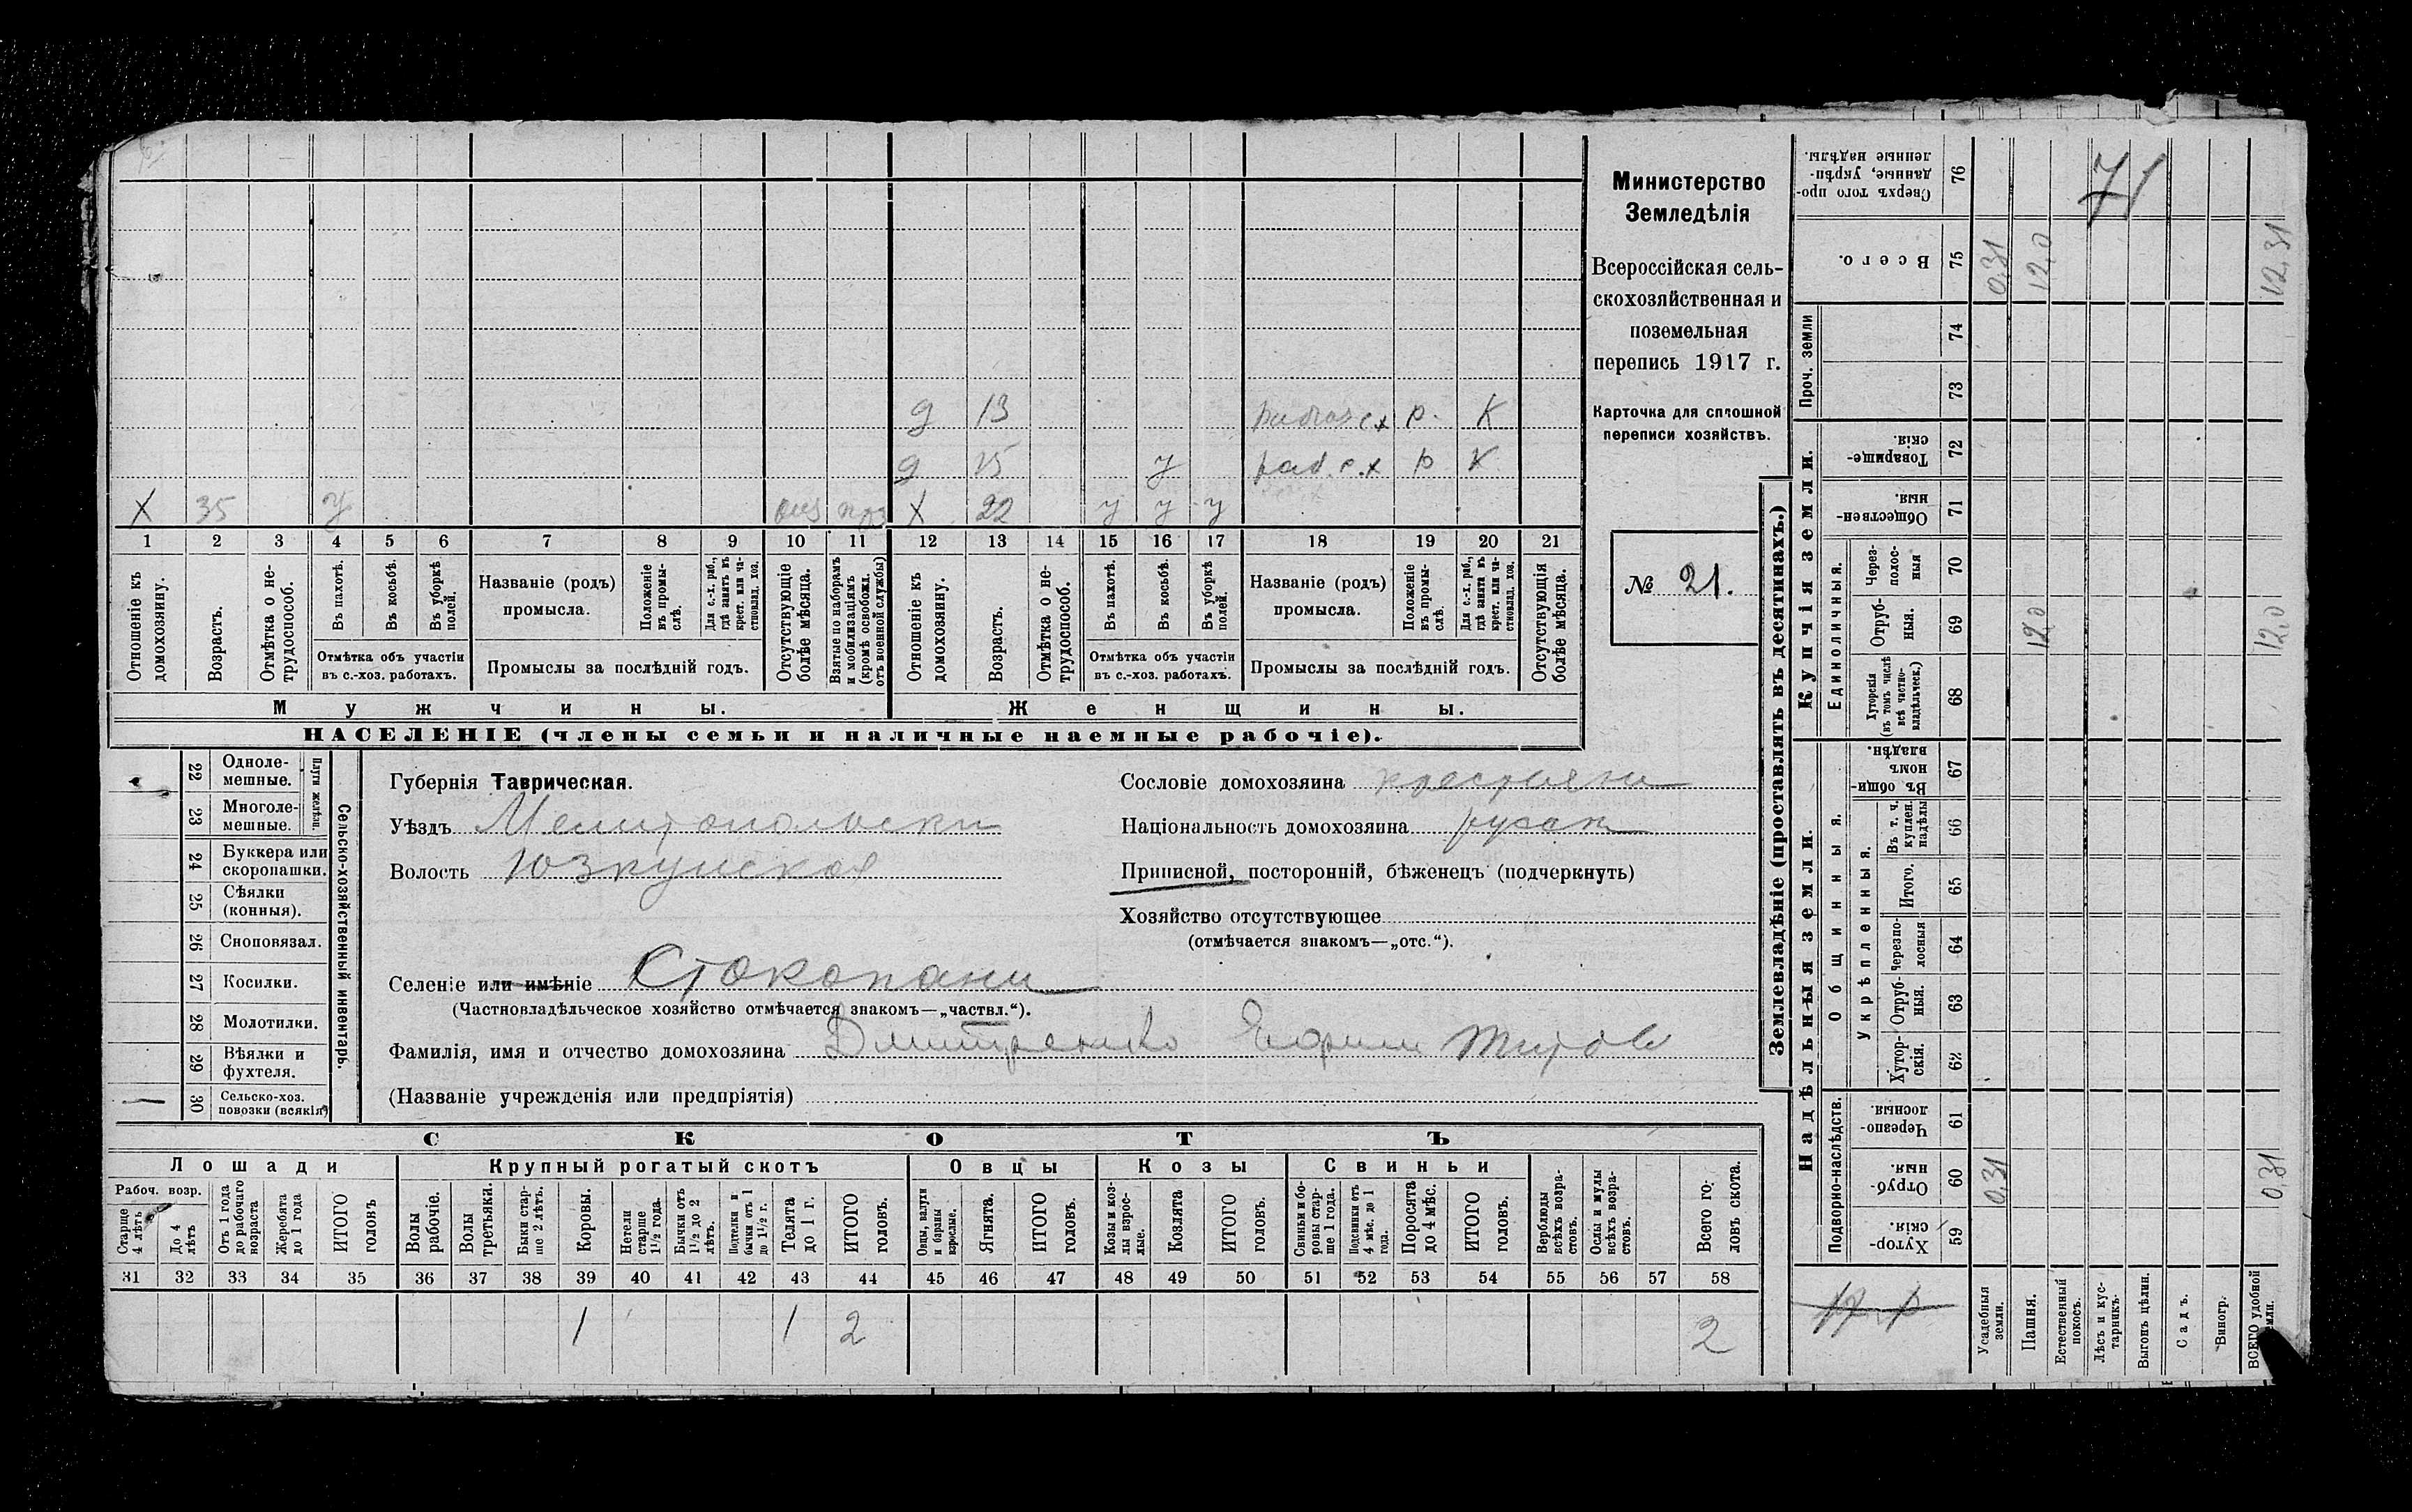 Министерство
Земледѣлія
Всероссійская сель-
скохозяйственная и
поземельная
перепись 1917 г.
Карточка для сплошной
переписи хозяйствъ.
№ 21.
71
д 13 р. К
д 15 у раб. с.х р К
Х 35 у Х 22 у у у
1 2 3 4 5 6 7 8 9 10 11 12 13 14 15 16 17 18 19 20 21
Отношеніе къ домохозяину.
Возрастъ.
Отмѣтка о не-трудоспособ.
Въ пахотѣ.
Въ косьбѣ.
Въ уборкѣ полей.
Отмѣтка объ участіи
въ с.-хоз. работахъ.
Названіе (родъ)
промысла.
Положеніе въ промы-слѣ.
Для с.-х. раб., гдѣ занятъ въ крест. или ча-стновлад. хоз.
Промыслы за послѣдній годъ.
Отсутствующіе болѣе мѣсяца.
Взятые по наборамъ и мобилизаціямъ (кромѣ освобожд. отъ военной службы)
Отношеніе къ домохозяину.
Возрастъ.
Отмѣтка о не-трудоспособ.
Въ пахотѣ.
Въ косьбѣ.
Въ уборкѣ полей.
Отмѣтка объ участіи
въ с.-хоз. работахъ.
Названіе (родъ)
промысла.
Положеніе въ промы-слѣ.
Для с.-х. раб., гдѣ занята въ крест. или ча-стновлад. хоз.
Промыслы за послѣдній годъ.
Отсутствующія болѣе мѣсяца.
Мужчины.
Женщины.
НАСЕЛЕНІЕ (члены семьи и наличные наемные рабочіе).
22 Одноле-мешные.
23 Многоле-мешные.
Плуги желѣзн.
24 Буккера или скоропашки.
25 Сѣялки (конныя).
26 Сноповязал.
27 Косилки.
28 Молотилки.
29 Вѣялки и фухтеля.
30 Сельско-хоз. повозки (всякія)
Сельско-хозяйственный инвентарь.
Губернія Таврическая.
Уѣздъ Мелитопольски
Волость Юзкуйская
Селеніе или имѣніе Стокопани
(Частновладѣльческое хозяйство отмѣчается знакомъ—„частвл.“).
Фамилія, имя и отчество домохозяина Дмитренко Ефрим Титов
(Названіе учрежденія или предпріятія)
Сословіе домохозяина крестьяни
Національность домохозяина русак
Приписной, посторонній, бѣженецъ (подчеркнуть)
Хозяйство отсутствующее
(отмѣчается знакомъ—„отс.“).
СКОТЪ
Лошади
Крупный рогатый скотъ
Овцы
Козы
Свиньи
Рабоч. возр.
Старше 4 лѣтъ
До 4 лѣтъ
Отъ 1 года до рабочаго возраста
Жеребята до 1 года
ИТОГО головъ
Волы рабочіе.
Волы третьяки.
Быки стар-ше 2 лѣтъ.
Коровы.
Нетели старше 1½ года.
Бычки отъ 1½ до 2 лѣтъ.
Подтелки и бычки отъ 1 до 1½ г.
Телята до 1 г.
ИТОГО головъ.
Овцы, валухи и бараны взрослые.
Ягнята.
ИТОГО головъ.
Козы и коз-лы взрос-лые.
Козлята
ИТОГО головъ.
Свиньи и бо-ровы стар-ше 1 года.
Подсвинки отъ 4 мѣс. до 1 года.
Поросята до 4 мѣс.
ИТОГО головъ.
Верблюды всѣхъ возра-стовъ.
Ослы и мулы всѣхъ возра-стовъ.
Всего го-ловъ скота.
31 32 33 34 35 36 37 38 39 40 41 42 43 44 45 46 47 48 49 50 51 52 53 54 55 56 57 58
1 1 2 2
Землевладѣніе (проставлять въ десятинахъ.)
Надѣльныя земли.
Купчія земли.
Проч. земли
Подворно-наслѣдств.
Общинныя.
Укрѣпленныя.
Единоличныя.
Хутор-скія. 59
Отруб-ныя. 60 0,31 0,31
Черезпо-лосныя. 61
Хутор-скія. 62
Отруб-ныя. 63
Черезпо-лосныя 64
Итого. 65
Въ т. ч. куплен. надѣлы 66
Въ общи-номъ владѣн. 67
Хуторскія (въ томъ числѣ всѣ частно-владѣльческ.) 68
Отруб-ныя. 69 12,0 12,0
Через-полос-ныя 70
Обществен-ныя. 71
Товарище-скія. 72
73
74
Всего. 75 0,31 12,0 12,31
Сверхъ того про-данные, укрѣп-ленные надѣлы. 76
Усадебныя земли.
Пашня.
Естественный покосъ.
Лѣсъ и кус-тарникъ.
Выгонъ цѣлин.
Садъ.
Виногр.
ВСЕГО удобной земли.